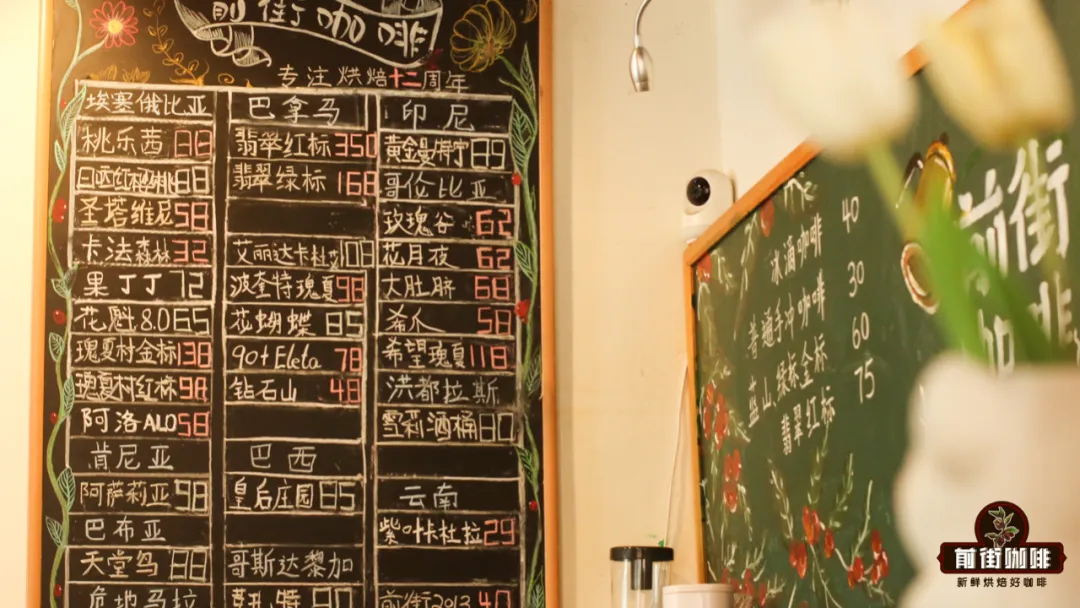 前街咖啡
专注烘焙十二周年
埃塞俄比亚
桃乐茜 88
日晒红樱桃 88
圣塔维尼 58
卡法森林 32
果丁丁 72
花魁8.0 65
瑰夏村金标 138
瑰夏村红标 98
阿洛ALO 58
肯尼亚
阿萨莉亚 98
巴布亚
天堂鸟 88
危地马拉
巴拿马
翡翠红标 350
翡翠绿标 168
艾丽达卡杜艾 108
波奎特瑰夏 98
花蝴蝶 85
90+Eleta 78
钻石山 48
巴西
皇后庄园 85
哥斯达黎加
印尼
黄金曼特宁 89
哥伦比亚
玫瑰谷 62
花月夜 62
大肚脐 68
希爪 58
希望瑰夏 118
洪都拉斯
雪莉酒桶 80
云南
紫叶卡杜拉 29
前街2013 40
冰滴咖啡 40
普通手冲咖啡 30
蓝山,绿标金标 60
翡翠红标 75
前街
咖啡
前街咖啡
新鲜烘焙好咖啡